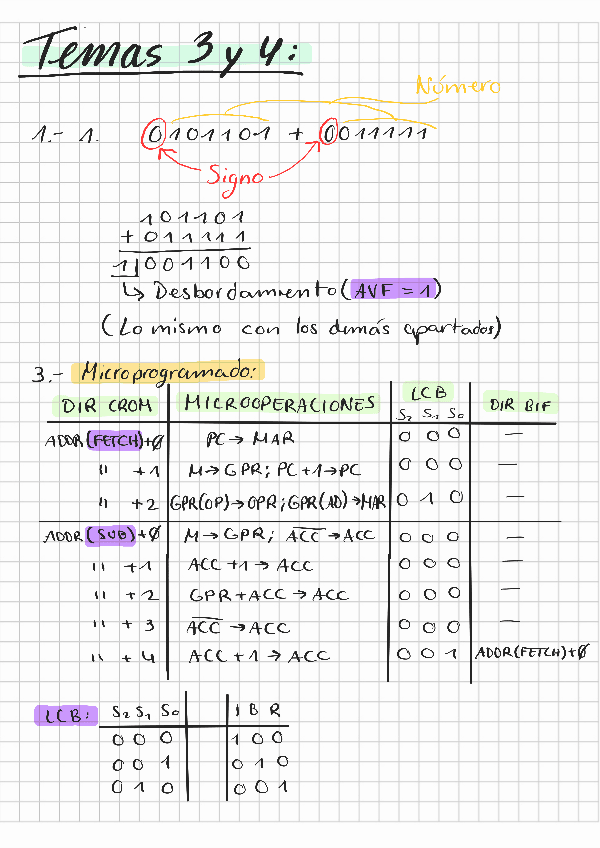 Temas 3 y 4:
Número
1.- 1. 0101101 + 0011111
Signo
101101
+ 011111
1|001100
↳ Desbordamiento (AVF = 1)
(Lo mismo con los demás apartados)
3.- Microprogramado:
DIR CROM MICROOPERACIONES LCB DIR BIF
S2 S1 S0
ADDR(FETCH)+0 PC → MAR 0 0 0 —
" +1 M → GPR; PC+1 → PC 0 0 0 —
" +2 GPR(OP) → OPR; GPR(AD) → MAR 0 1 0 —
ADDR(SUB)+0 M → GPR; A̅C̅C̅ → ACC 0 0 0 —
" +1 ACC +1 → ACC 0 0 0 —
" +2 GPR + ACC → ACC 0 0 0 —
" +3 A̅C̅C̅ → ACC 0 0 0 —
" +4 ACC +1 → ACC 0 0 1 ADDR(FETCH)+0
LCB: S2 S1 S0 I B R
0 0 0 1 0 0
0 0 1 0 1 0
0 1 0 0 0 1